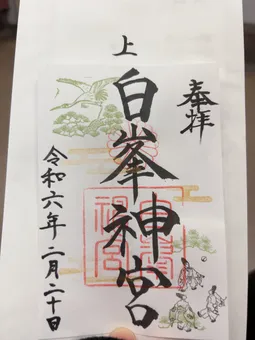 奉拝
上
白峯神宮
令和六年 二月二十日